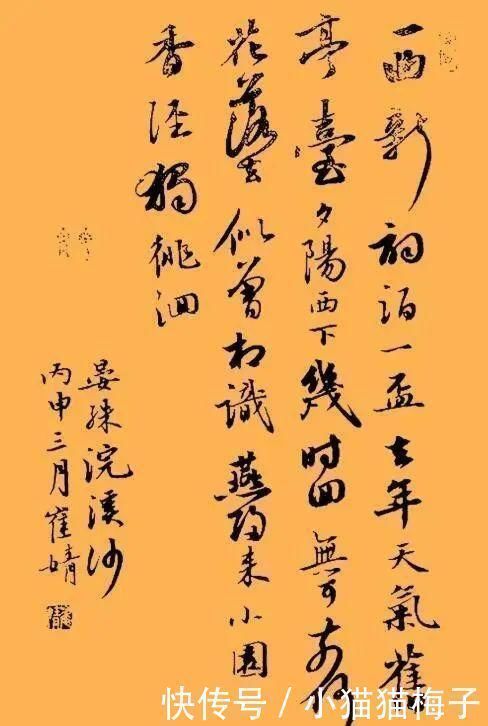 一曲新詞酒一盃去年天氣舊
亭臺夕陽西下幾时回無可奈何
花落去似曾相識燕歸来小園
香徑獨徘徊
晏殊浣溪沙
丙申三月崔婧
快传号 / 小猫猫梅子